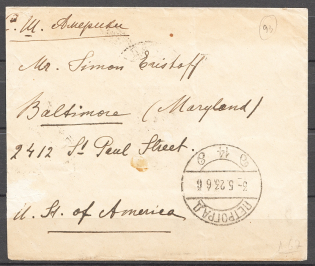 С. Ш. Америки
Mr. Simon Erishoff
Baltimore (Maryland)
2412 St Paul Street.
U. St. of America
ПЕТРОГРАД
3-5.23.6